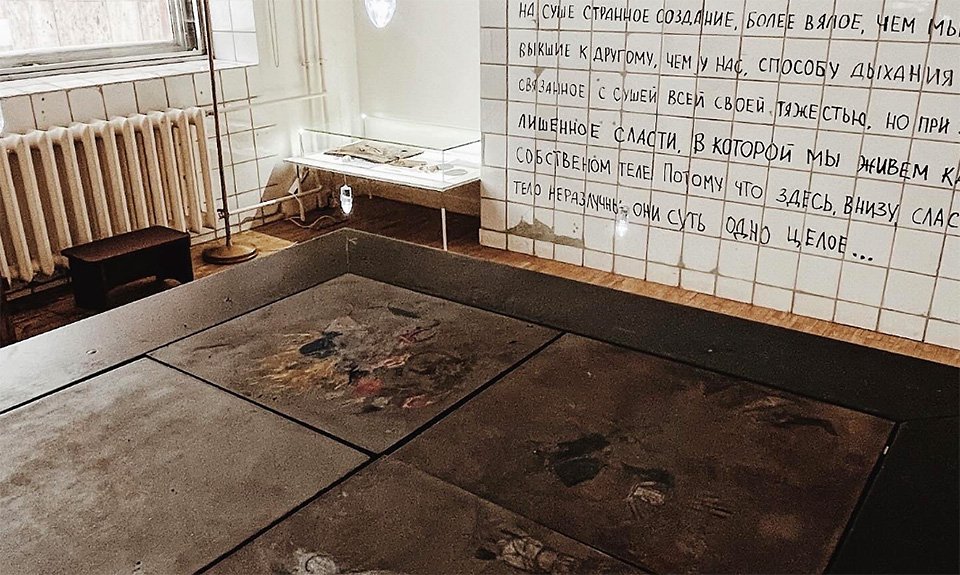 НА СУШЕ СТРАННОЕ СОЗДАНИЕ, БОЛЕЕ ВЯЛОЕ, ЧЕМ МЫ
ВЫКШИЕ К ДРУГОМУ, ЧЕМ У НАС, СПОСОБУ ДЫХАНИЯ
СВЯЗАННОЕ С СУШЕЙ ВСЕЙ СВОЕЙ ТЯЖЕСТЬЮ, НО ПРИ
ЛИШЕННОЕ СЛАСТИ, В КОТОРОЙ МЫ ЖИВЕМ КА
СОБСТВЕНОМ ТЕЛЕ. ПОТОМУ ЧТО ЗДЕСЬ, ВНИЗУ, СЛАС
ТЕЛО НЕРАЗЛУЧНЫ, ОНИ СУТЬ ОДНО ЦЕЛОЕ...